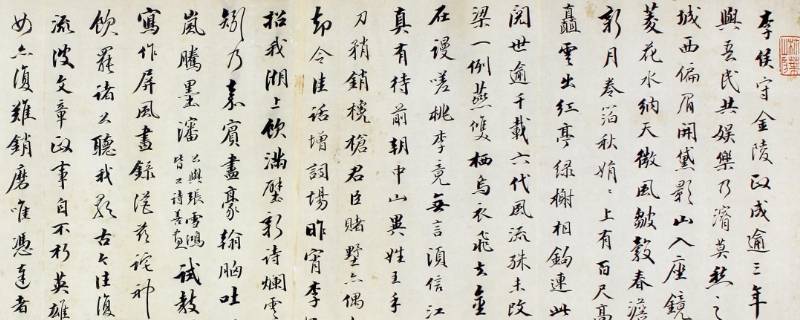 李侯守金陵政成逾三年
與吾民共娛樂乃濬莫愁之
城西偏眉開黛影山入座鏡
菱花水納天微風皺縠春澹
新月卷箔秋娟〻上有百尺高
矗雲出紅亭綠榭相鉤連此
閱世逾千載六代風流殊未改
梁一例燕雙栖烏衣飛去金
在謾嗟桃李竟無言須信江
真有待前朝中山異姓王手
刀稍銷欃槍君臣賭墅亦偶
却令佳話增詞場昨宵李
招我湖上飲滿壁新詩爛雲
矧乃賓盡豪翰胸吐
嵐騰墨瀋公與張雪鴻皆工詩善畫試教
寫作屏風畫錄從茲詫神
飲罷諸公聽我歌古今往復
流波文章政事自不朽英雄
亦復難銷磨唯憑達者